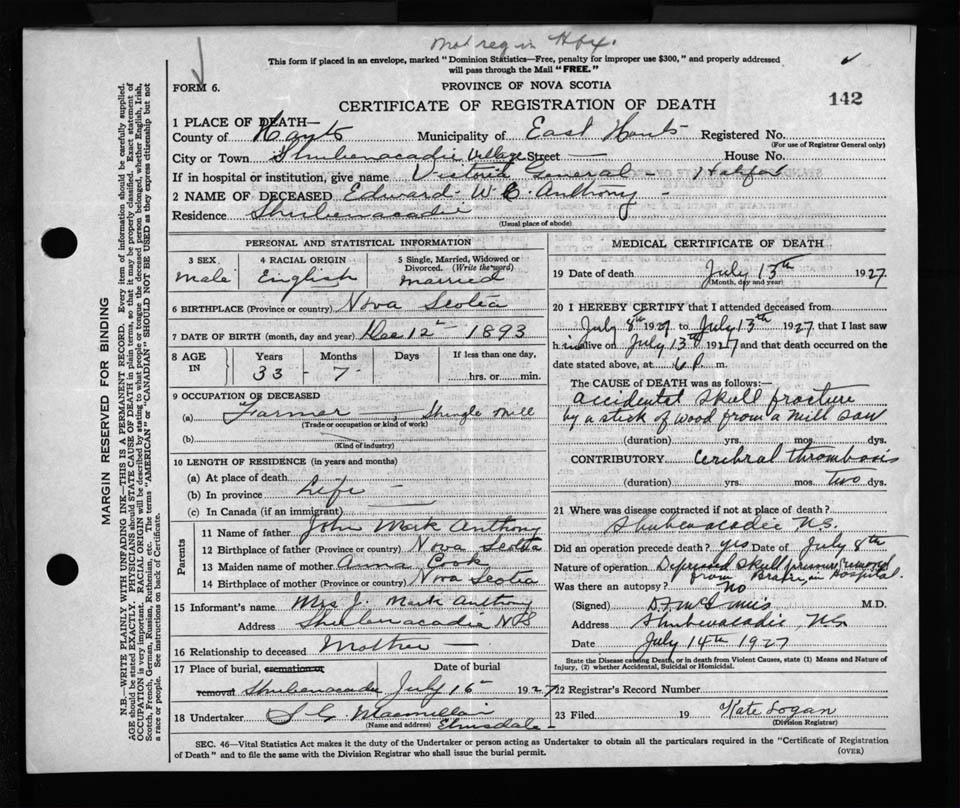 Not reg in Hfx.
This form if placed in an envelope, marked "Dominion Statistics—Free, penalty for improper use $300," and properly addressed
will pass through the Mail "FREE."
FORM 6.
PROVINCE OF NOVA SCOTIA
CERTIFICATE OF REGISTRATION OF DEATH
142
1 PLACE OF DEATH—
County of Hants Municipality of East Hants Registered No.
(For use of Registrar General only)
City or Town Shubenacadie Village Street — House No.
If in hospital or institution, give name Victoria General - Halifax
2 NAME OF DECEASED Edward W. C. Anthony
Residence Shubenacadie
(Usual place of abode)
PERSONAL AND STATISTICAL INFORMATION
3 SEX
Male
4 RACIAL ORIGIN
English
5 Single, Married, Widowed or
Divorced. (Write the word)
Married
6 BIRTHPLACE (Province or country) Nova Scotia
7 DATE OF BIRTH (month, day and year) Dec 12th 1893
8 AGE
IN
Years
33
Months
7
Days
If less than one day,
hrs. or min.
9 OCCUPATION OF DECEASED
(a) Farmer, Shingle Mill
(Trade or occupation or kind of work)
(b)
(Kind of industry)
10 LENGTH OF RESIDENCE (in years and months)
(a) At place of death
(b) In province Life
(c) In Canada (if an immigrant)
Parents
11 Name of father John Mark Anthony
12 Birthplace of father (Province or country) Nova Scotia
13 Maiden name of mother Anna Cook
14 Birthplace of mother (Province or country) Nova Scotia
15 Informant's name Mrs J. Mark Anthony
Address Shubenacadie NS
16 Relationship to deceased Mother
17 Place of burial, cremation or
removal Shubenacadie
Date of burial
July 16th 1927
18 Undertaker
(Name and address) Elmsdale
MEDICAL CERTIFICATE OF DEATH
19 Date of death July 13th 1927
(Month, day and year)
20 I HEREBY CERTIFY that I attended deceased from
July 8th 1927 to July 13th 1927 that I last saw
him alive on July 13th 1927 and that death occurred on the
date stated above, at 6 P. m.
The CAUSE OF DEATH was as follows:—
Accidental Skull fracture
by a stick of wood from a Mill saw
(duration) yrs. mos. dys.
CONTRIBUTORY Cerebral thrombosis
(duration) yrs. mos. Two dys.
21 Where was disease contracted if not at place of death?
Shubenacadie N.S.
Did an operation precede death? yes Date of July 8th
Nature of operation Depressed skull pressure removed
from Brain, in Hospital.
Was there an autopsy? No
(Signed) M.D.
Address Shubenacadie, N.S.
Date July 14th 1927
State the Disease causing Death, or in death from Violent Causes, state (1) Means and Nature
of Injury, (2) whether Accidental, Suicidal or Homicidal.
22 Registrar's Record Number
23 Filed 19 Kate Logan
(Division Registrar)
SEC. 46—Vital Statistics Act makes it the duty of the Undertaker or person acting as Undertaker to obtain all the particulars required in the "Certificate of Registration
of Death" and to file the same with the Division Registrar who shall issue the burial permit.
(OVER)
MARGIN RESERVED FOR BINDING
N.B.—WRITE PLAINLY WITH UNFADING INK—THIS IS A PERMANENT RECORD. Every item of information should be carefully supplied.
AGE should be stated EXACTLY. PHYSICIANS should STATE CAUSE OF DEATH in plain terms, so that it may be properly classified. Exact statement of
OCCUPATION is very important. RACIAL ORIGIN will be described by stating to what people or tongue the deceased person belonged, whether English, Irish,
Scotch, French, German, Russian, Ruthenian, etc. The terms "AMERICAN" or "CANADIAN" SHOULD NOT BE USED as they express citizenship but not
a race or people. See instructions on back of Certificate.